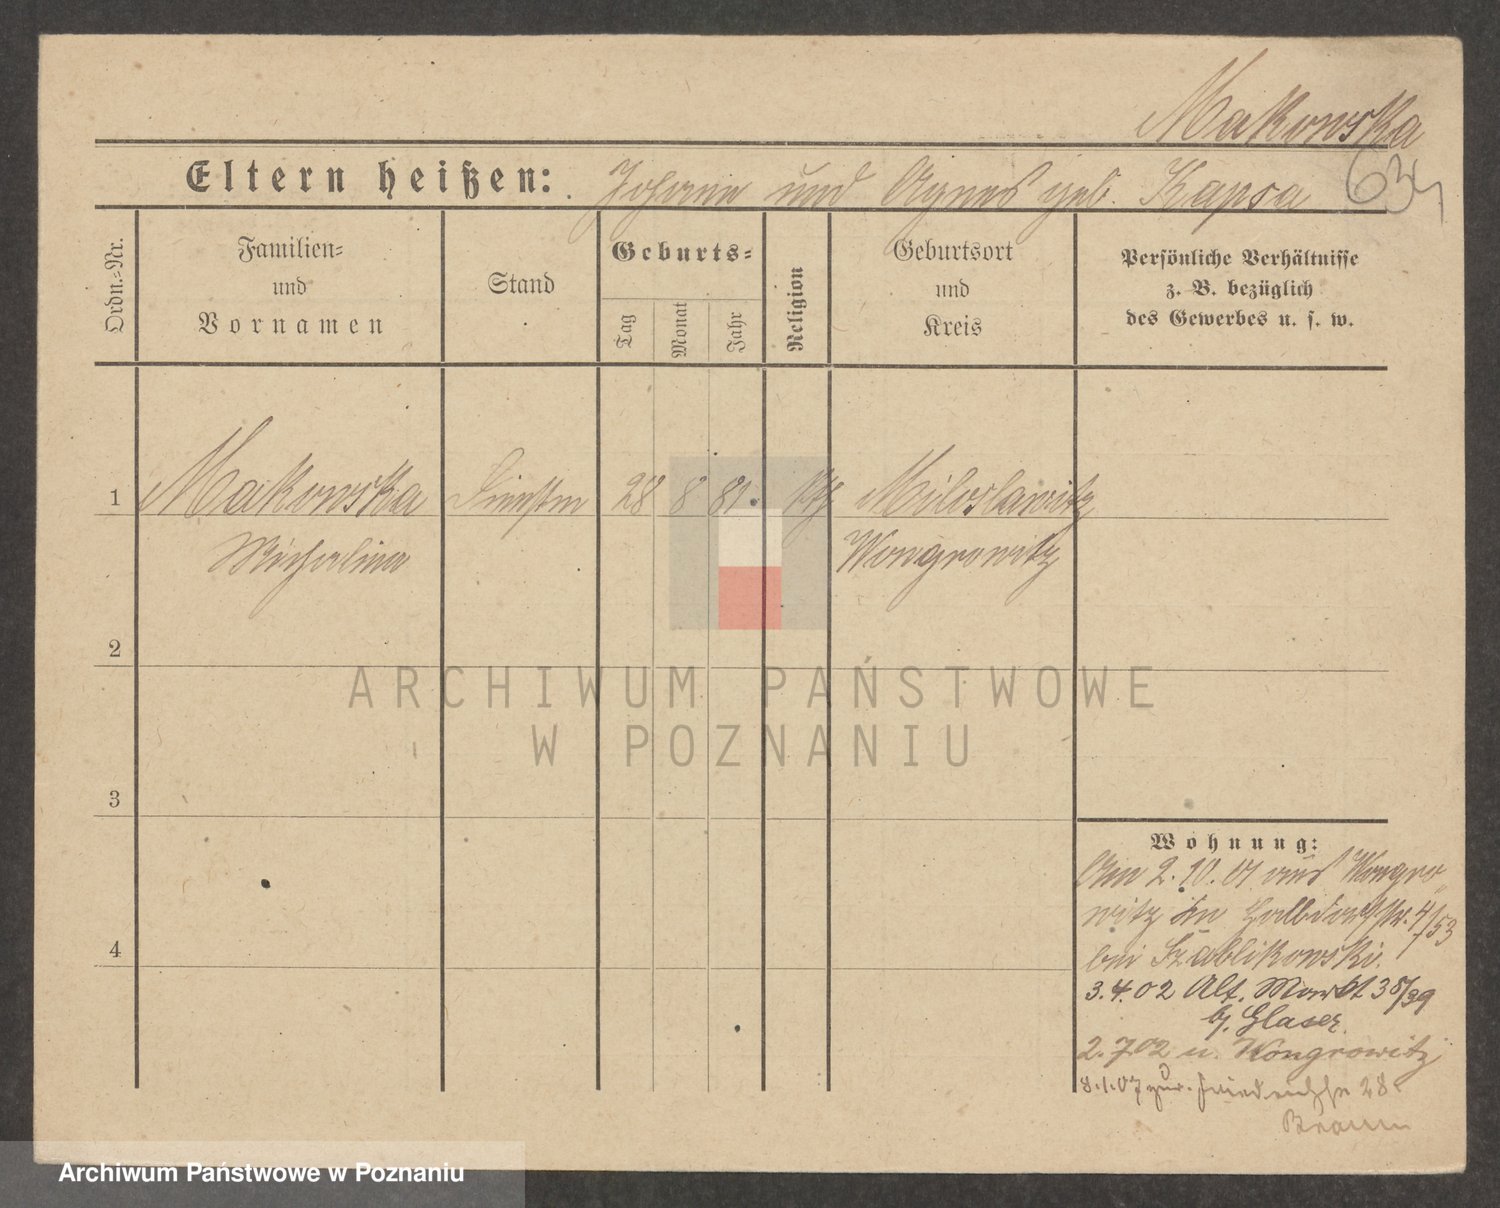 Makowska
Eltern heißen: Johann und Agnes geb. Kapsa
634
Ordn.-Nr.
Familien-
und
Vornamen
Stand
Geburts-
Tag
Monat
Jahr
Religion
Geburtsort
und
Kreis
Persönliche Verhältnisse
z. B. bezüglich
des Gewerbes u. s. w.
1
Makowska
Michalina
28 8 81.
kth
Miloslawitz
Wongrowitz
2
3
4
Wohnung:
Am 2.10.01 aus Wongro-
witz in Halbdorfstr. 4/53
bei Szablikowski.
3.4.02 Alt. Markt 38/39
b/. Glaser.
2.7.02 n. Wongrowitz
8.1.07 zur. 28
Braun
ARCHIWUM PAŃSTWOWE
W POZNANIU
Archiwum Państwowe w Poznaniu